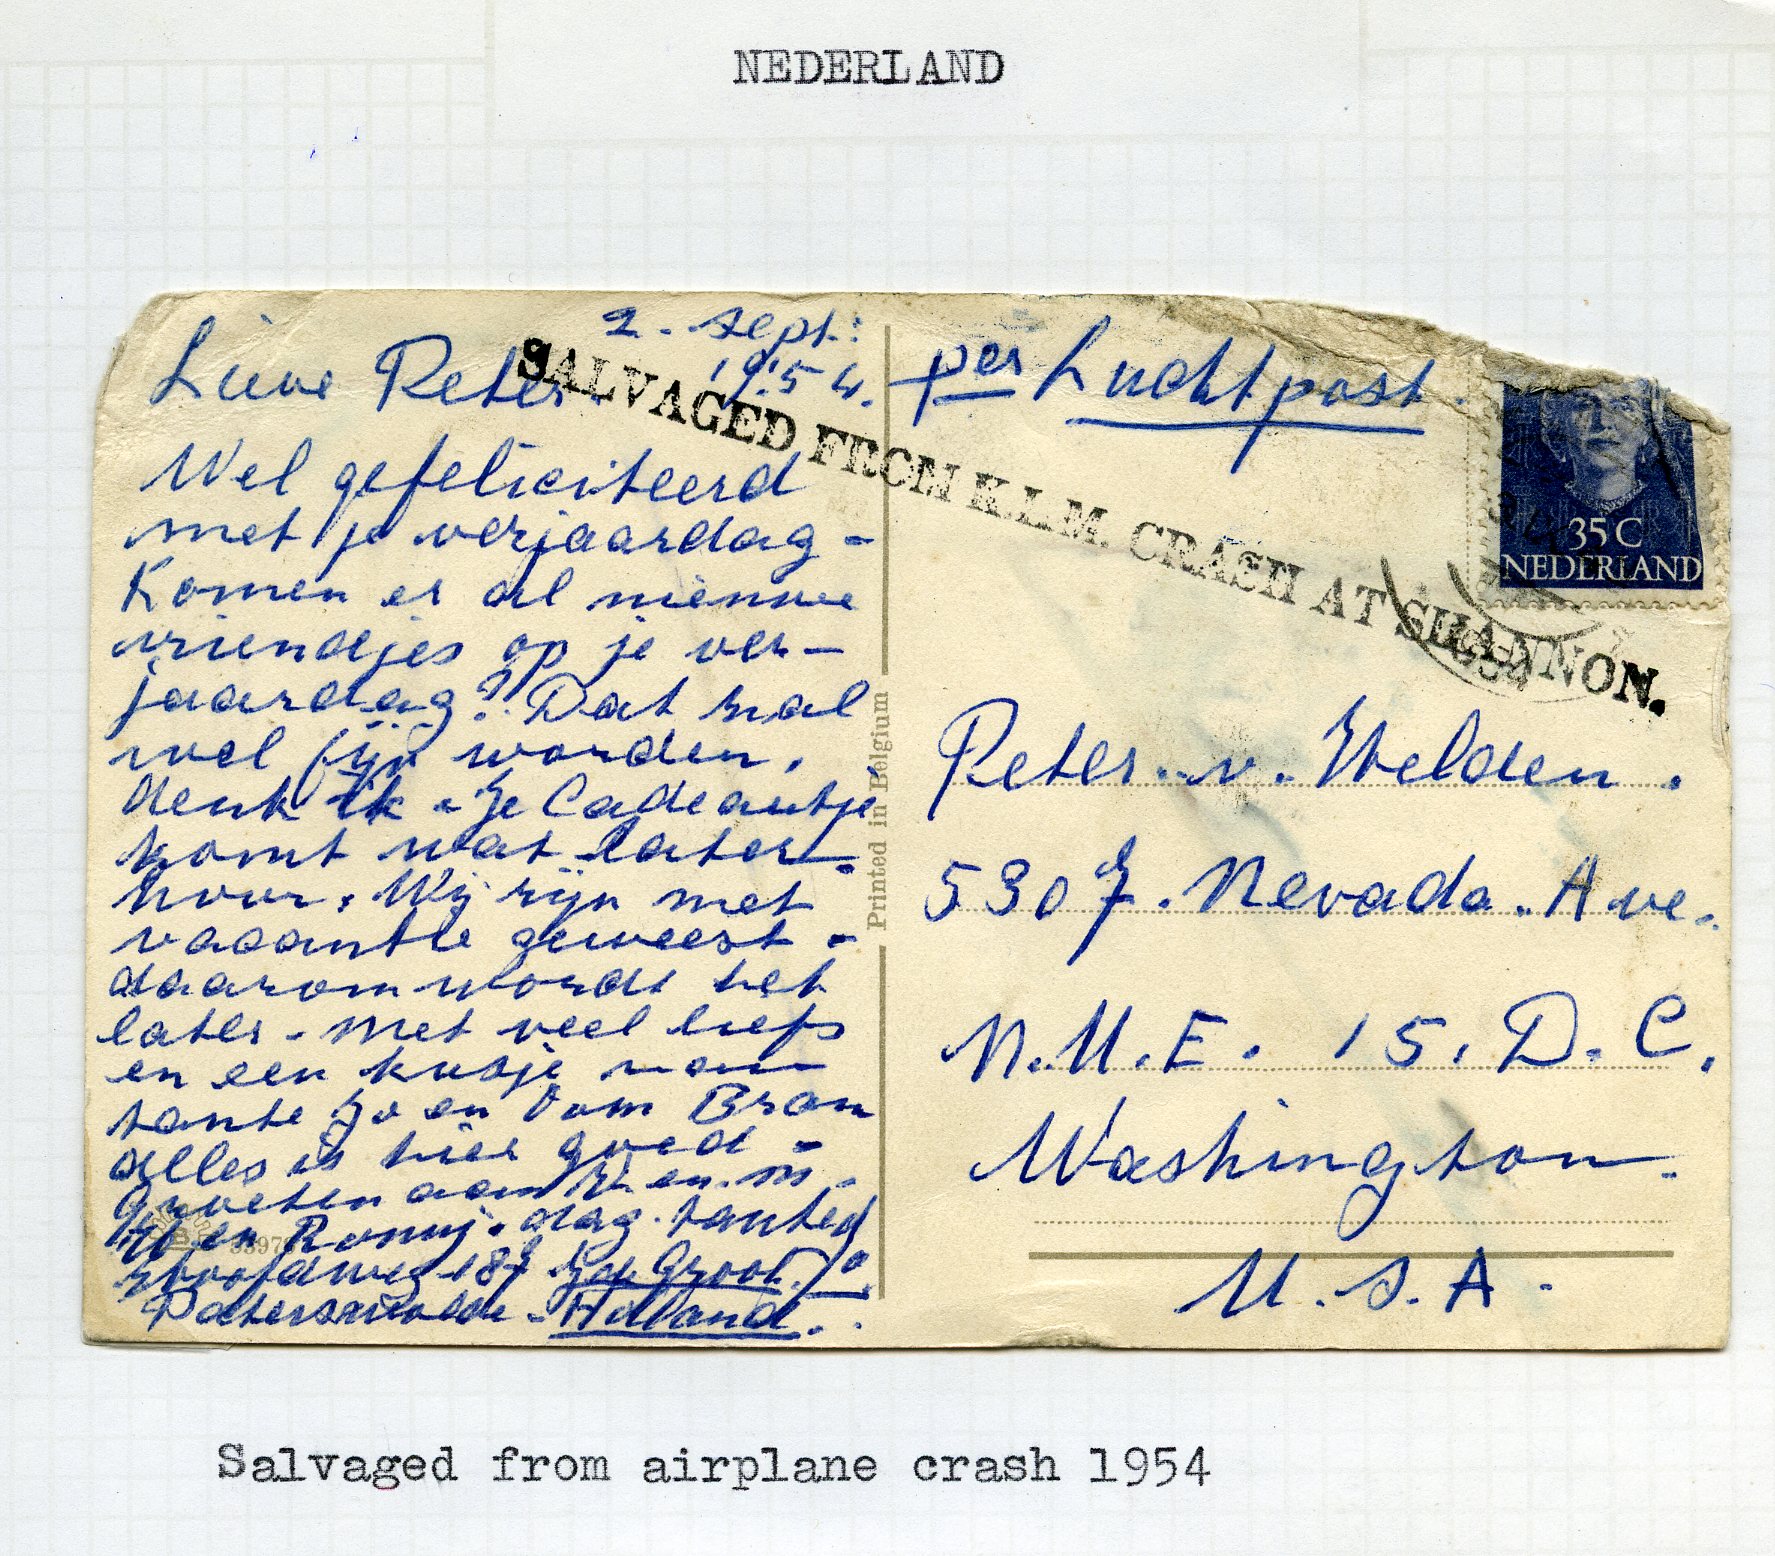 NEDERLAND
2. sept.
1954.
Lieve Peter
Wel gefeliciteerd
met je verjaardag -
Komen er al nieuwe
vriendjes op je ver-
jaardag? Dat zal
wel fijn worden,
denk ik. Je Cadeautje
komt wat later
hoor. Wij zijn met
vacantie geweest -
daarom wordt het
later. Met veel liefs
en een kusje van
tante Jo en Oom Bram
alles is hier goed -
Groeten aan
en Ronny. dag. tante
Hoofdweg 187
Paterswolde - Holland.
SALVAGED FROM K.L.M. CRASH AT SHANNON.
Printed in Belgium
per Luchtpost.
35 C
NEDERLAND
1954
Peter. v. Helden.
5307. Nevada. Ave.
N.W.E. 15. D.C.
Washington.
U.S.A.
Salvaged from airplane crash 1954